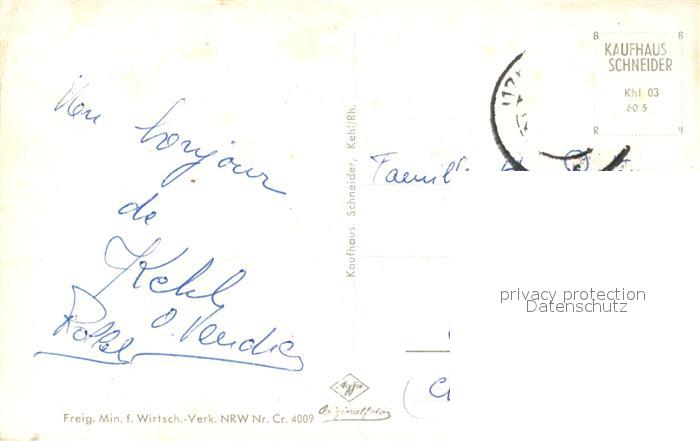 bonjour
de
Kehl
Kaufhaus Schneider, Kehl/Rh.
B B
KAUFHAUS
SCHNEIDER
Khl 03
60 5
R B
Famill
privacy protection
Datenschutz
Agfa
Originalfoto
Freig. Min. f. Wirtsch.-Verk. NRW Nr. Cr. 4009